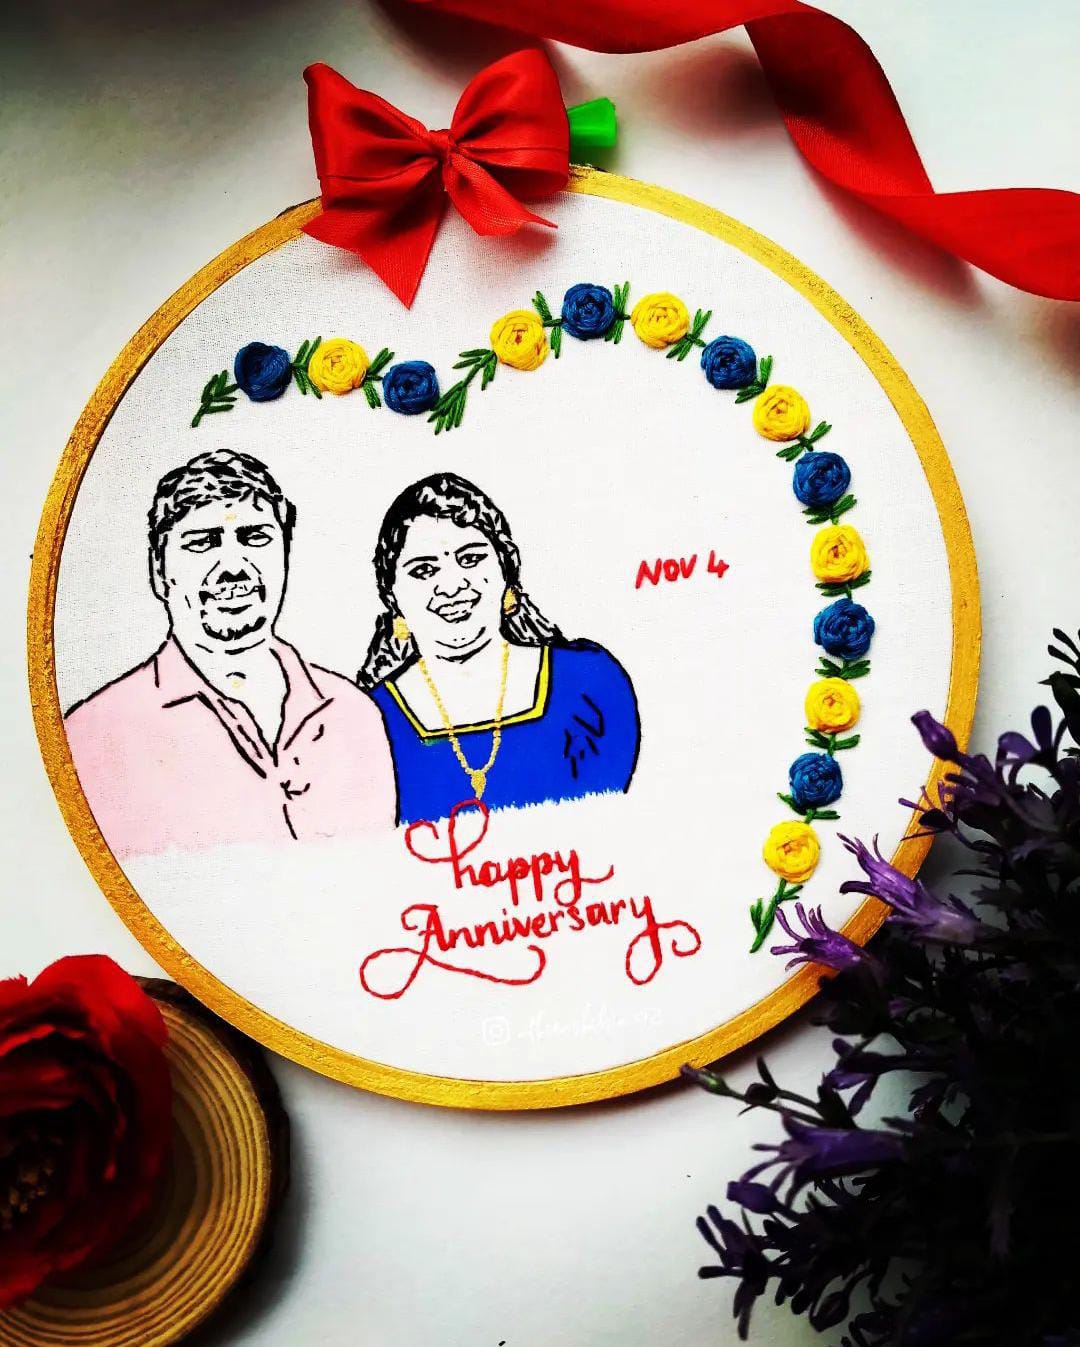 NOV 4
happy
Anniversary